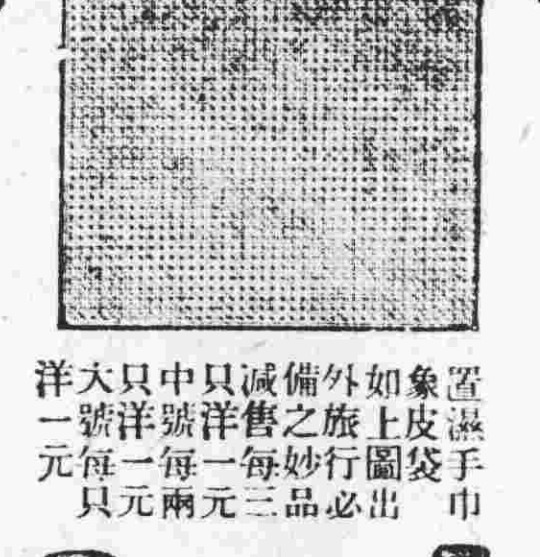 置濕手巾
象皮袋
如上圖出
外旅行必
備之妙品
減售每三
只洋一元
中號每兩
只洋一元
大號每只
洋一元